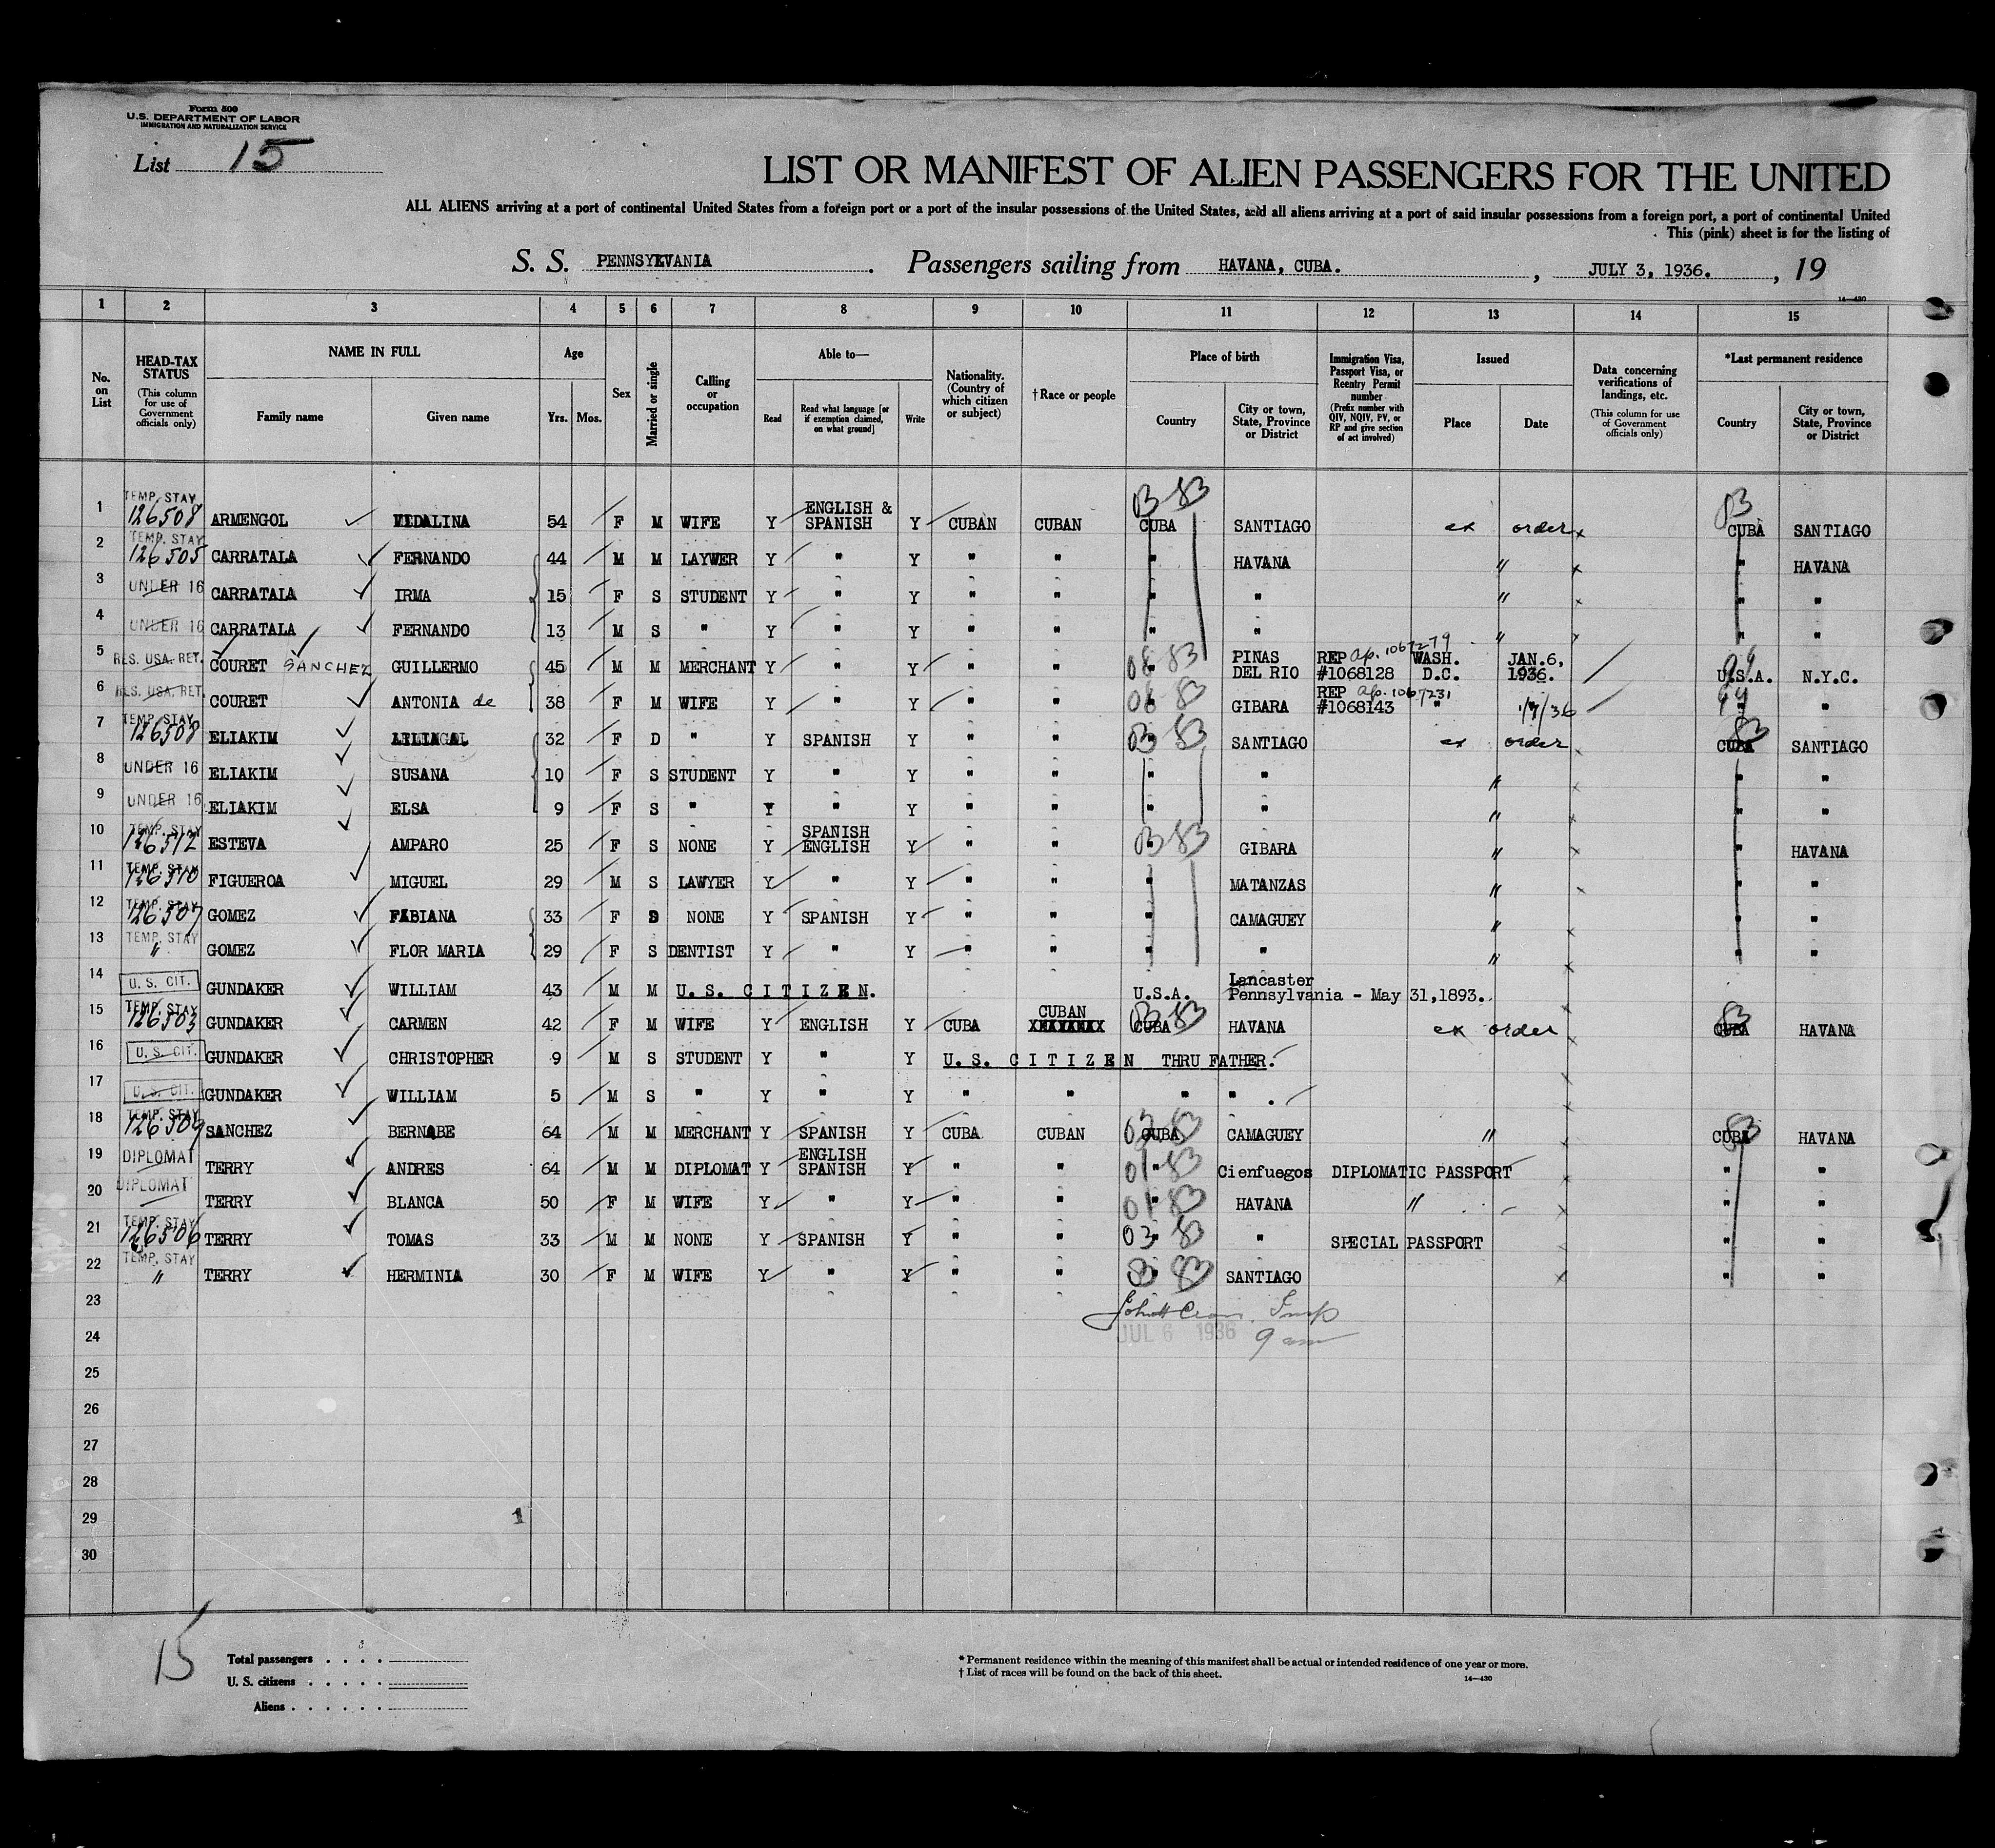 Form 500
U.S. DEPARTMENT OF LABOR
IMMIGRATION AND NATURALIZATION SERVICE
List 15
LIST OR MANIFEST OF ALIEN PASSENGERS FOR THE UNITED
ALL ALIENS arriving at a port of continental United States from a foreign port or a port of the insular possessions of the United States, and all aliens arriving at a port of said insular possessions from a foreign port, a port of continental United
This (pink) sheet is for the listing of
S. S. PENNSYLVANIA. Passengers sailing from HAVANA, CUBA. , JULY 3, 1936. , 19
14—430
1 2 3 4 5 6 7 8 9 10 11 12 13 14 15
No. on List
HEAD-TAX STATUS (This column for use of Government officials only)
NAME IN FULL
Family name Given name
Age
Yrs. Mos.
Sex
Married or single
Calling or occupation
Able to—
Read Read what language [or if exemption claimed, on what ground] Write
Nationality. (Country of which citizen or subject)
†Race or people
Place of birth
Country City or town, State, Province or District
Immigration Visa, Passport Visa, or Reentry Permit number (Prefix number with QIV, NQIV, PV, or RP and give section of act involved)
Issued
Place Date
Data concerning verifications of landings, etc. (This column for use of Government officials only)
*Last permanent residence
Country City or town, State, Province or District
1 TEMP. STAY 126508 ARMENGOL VIDALINA 54 F M WIFE Y ENGLISH & SPANISH Y CUBAN CUBAN CUBA 03 83 SANTIAGO ex order x CUBA SANTIAGO
2 TEMP. STAY 126505 CARRATALA FERNANDO 44 M M LAYWER Y " Y " " " HAVANA " x " HAVANA
3 UNDER 16 CARRATALA IRMA 15 F S STUDENT Y " Y " " " " " x " "
4 UNDER 16 CARRATALA FERNANDO 13 M S " Y " Y " " " " " x " "
5 RES. USA. RET. COURET SANCHEZ GUILLERMO 45 M M MERCHANT Y " Y " " " 08 83 PINAS DEL RIO REP ap. 1067279 #1068128 WASH. D.C. JAN.6, 1936. U.S.A. N.Y.C.
6 RES. USA. RET. COURET ANTONIA de 38 F M WIFE Y " Y " " " 08 83 GIBARA REP ap. 1067231 #1068143 " 1/7/36 " "
7 TEMP. STAY 126508 ELIAKIM 32 F D " Y SPANISH Y " " " 03 83 SANTIAGO ex order CUBA SANTIAGO
8 UNDER 16 ELIAKIM SUSANA 10 F S STUDENT Y " Y " " " " " x " "
9 UNDER 16 ELIAKIM ELSA 9 F S " Y " Y " " " " " x " "
10 TEMP. STAY 126512 ESTEVA AMPARO 25 F S NONE Y SPANISH ENGLISH Y " " " 03 83 GIBARA " x " HAVANA
11 TEMP. STAY 126510 FIGUEROA MIGUEL 29 M S LAWYER Y " Y " " " MATANZAS " x " "
12 TEMP. STAY 126507 GOMEZ FABIANA 33 F S NONE Y SPANISH Y " " " CAMAGUEY " x " "
13 TEMP. STAY " GOMEZ FLOR MARIA 29 F S DENTIST Y " Y " " " " " x " "
14 U. S. CIT. GUNDAKER WILLIAM 43 M M U.S. CITIZEN. U.S.A. Lancaster Pennsylvania - May 31,1893. x
15 TEMP. STAY 126503 GUNDAKER CARMEN 42 F M WIFE Y ENGLISH Y CUBA CUBAN CUBA 03 83 HAVANA ex order x CUBA HAVANA
16 U. S. CIT. GUNDAKER CHRISTOPHER 9 M S STUDENT Y " Y U.S. CITIZEN THRU FATHER. x
17 U. S. CIT. GUNDAKER WILLIAM 5 M S " Y " Y " " " " . x
18 TEMP. STAY 126509 SANCHEZ BERNABE 64 M M MERCHANT Y SPANISH Y CUBA CUBAN CUBA 03 83 CAMAGUEY " x CUBA HAVANA
19 DIPLOMAT TERRY ANDRES 64 M M DIPLOMAT Y ENGLISH SPANISH Y " " " 01 83 Cienfuegos DIPLOMATIC PASSPORT x " "
20 DIPLOMAT TERRY BLANCA 50 F M WIFE Y " Y " " " 01 83 HAVANA " x " "
21 TEMP. STAY 126506 TERRY TOMAS 33 M M NONE Y SPANISH Y " " " 03 83 " SPECIAL PASSPORT x " "
22 TEMP. STAY " TERRY HERMINIA 30 F M WIFE Y " Y " " " 83 SANTIAGO x " "
23
24 JUL 6 1936 9 am
25
26
27
28
29 1
30
15
Total passengers . . . .
U. S. citizens . . . . .
Aliens . . . . . .
* Permanent residence within the meaning of this manifest shall be actual or intended residence of one year or more.
† List of races will be found on the back of this sheet.
14—430